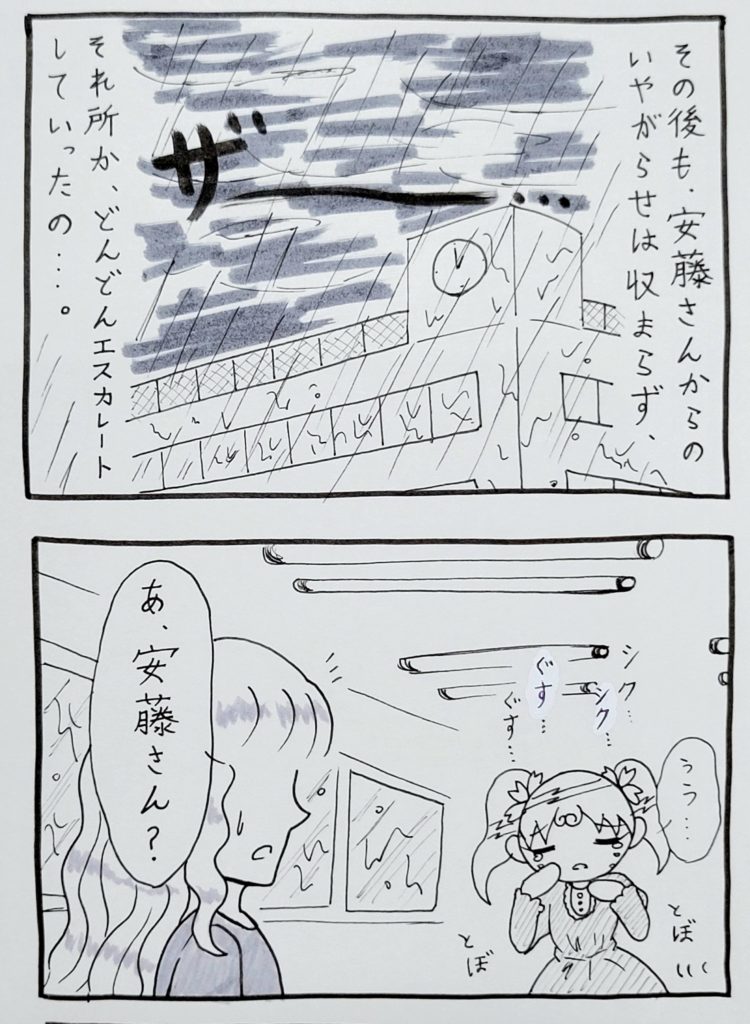 その後も、安藤さんからの
いやがらせは収まらず、
ザー…
それ所か、どんどんエスカレート
していったの…。
うう…
シク…
シク…
ぐす…
ぐす…
とぼ
とぼ
あ、安藤さん？